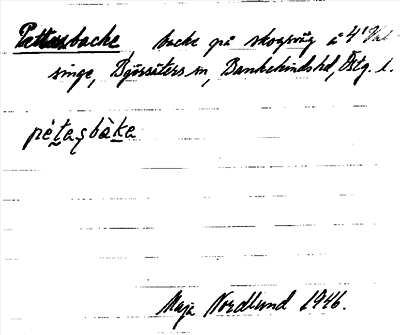 Pettersbacke, backe på skogsväg å 4¹ Val-
singe, Björsäters sn, Bankekinds hd, Östg. l.
pètaṣbàka
Maja Nordlund 1946.